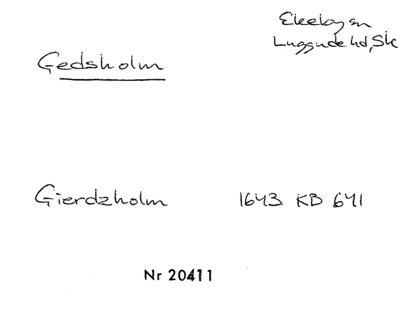 Ekeby sn
Luggude hd, Sk
Gedsholm
Gierdzholm 1643 KB 641
Nr 20411